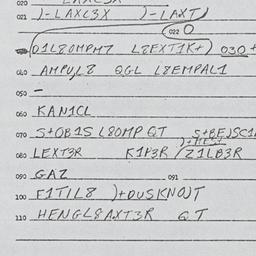 020
021 )-LAXC3X )-LAXT)
022 O
01L80MPM7 L8EXT1K+) 030 +
040 AMPUL8 QGL L8EMPAL1
050 -
060 KAN1CL
070 S+OB1S L80MP QT S+BEJSC1
080 LEXT3R K1P3R /Z1LB3R
090 GAZ 091
100 F1T1L8 )+DUSKNOJT
110 HENGL8AXT3R QT